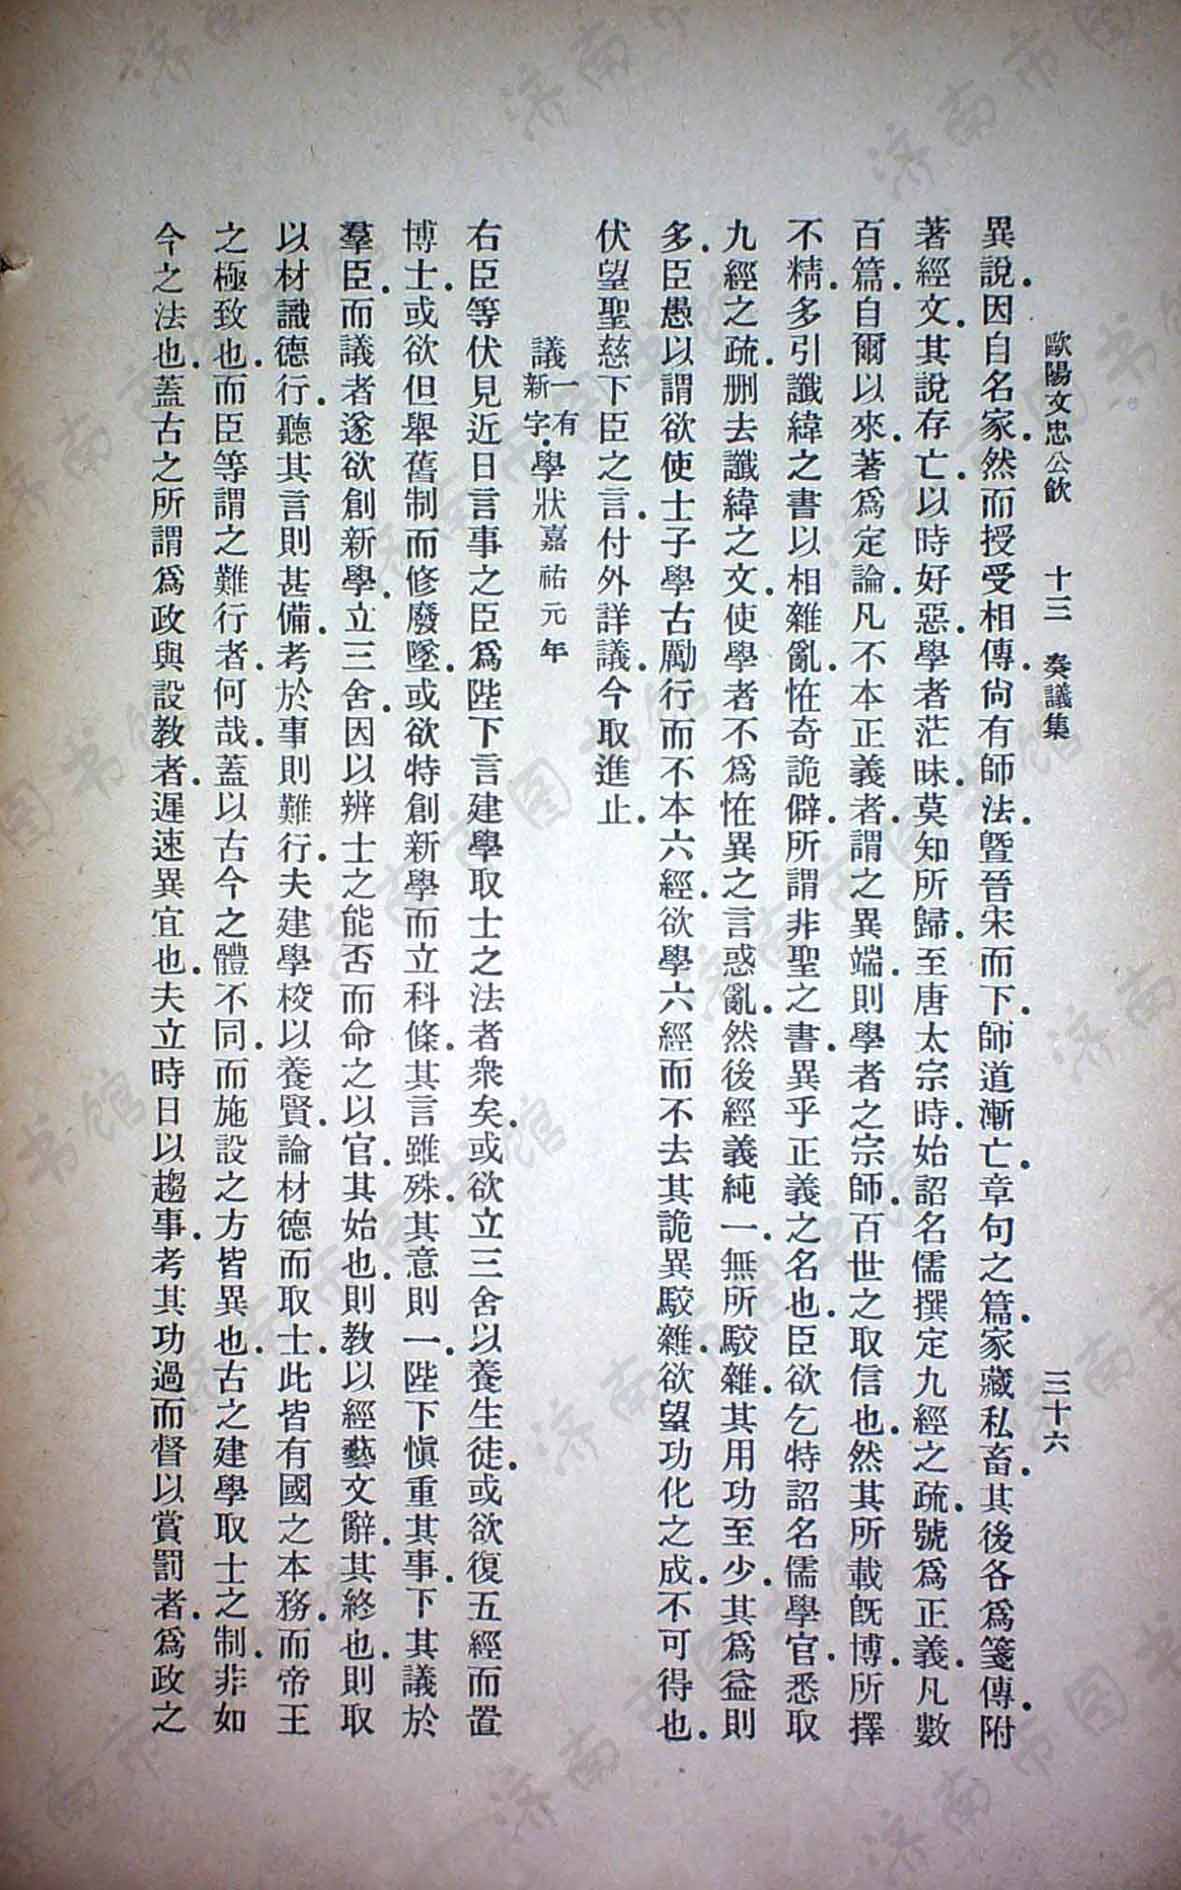 歐陽文忠公飮 十三 奏議集 三十六
異說因自名家然而授受相傳尙有師法曁晉宋而下師道漸亡章句之篇家藏私畜其後各爲箋傳附
著經文其說存亡以時好惡學者茫昧莫知所歸至唐太宗時始詔名儒撰定九經之疏號爲正義凡數
百篇自爾以來著爲定論凡不本正義者謂之異端則學者之宗師百世之取信也然其所載旣博所擇
不精多引讖緯之書以相雜亂怪奇詭僻所謂非聖之書異乎正義之名也臣欲乞特詔名儒學官悉取
九經之疏删去讖緯之文使學者不爲怪異之言惑亂然後經義純一無所駮雜其用功至少其爲益則
多臣愚以謂欲使士子學古勵行而不本六經欲學六經而不去其詭異駮雜欲望功化之成不可得也
伏望聖慈下臣之言付外詳議今取進止
議一有新字學狀嘉祐元年
右臣等伏見近日言事之臣爲陛下言建學取士之法者衆矣或欲立三舍以養生徒或欲復五經而置
博士或欲但舉舊制而修廢墜或欲特創新學而立科條其言雖殊其意則一陛下愼重其事下其議於
羣臣而議者遂欲創新學立三舍因以辨士之能否而命之以官其始也則教以經藝文辭其終也則取
以材識德行聽其言則甚備考於事則難行夫建學校以養賢論材德而取士此皆有國之本務而帝王
之極致也而臣等謂之難行者何哉蓋以古今之體不同而施設之方皆異也古之建學取士之制非如
今之法也蓋古之所謂爲政與設教者遲速異宜也夫立時日以趨事考其功過而督以賞罰者爲政之
济南市图书馆